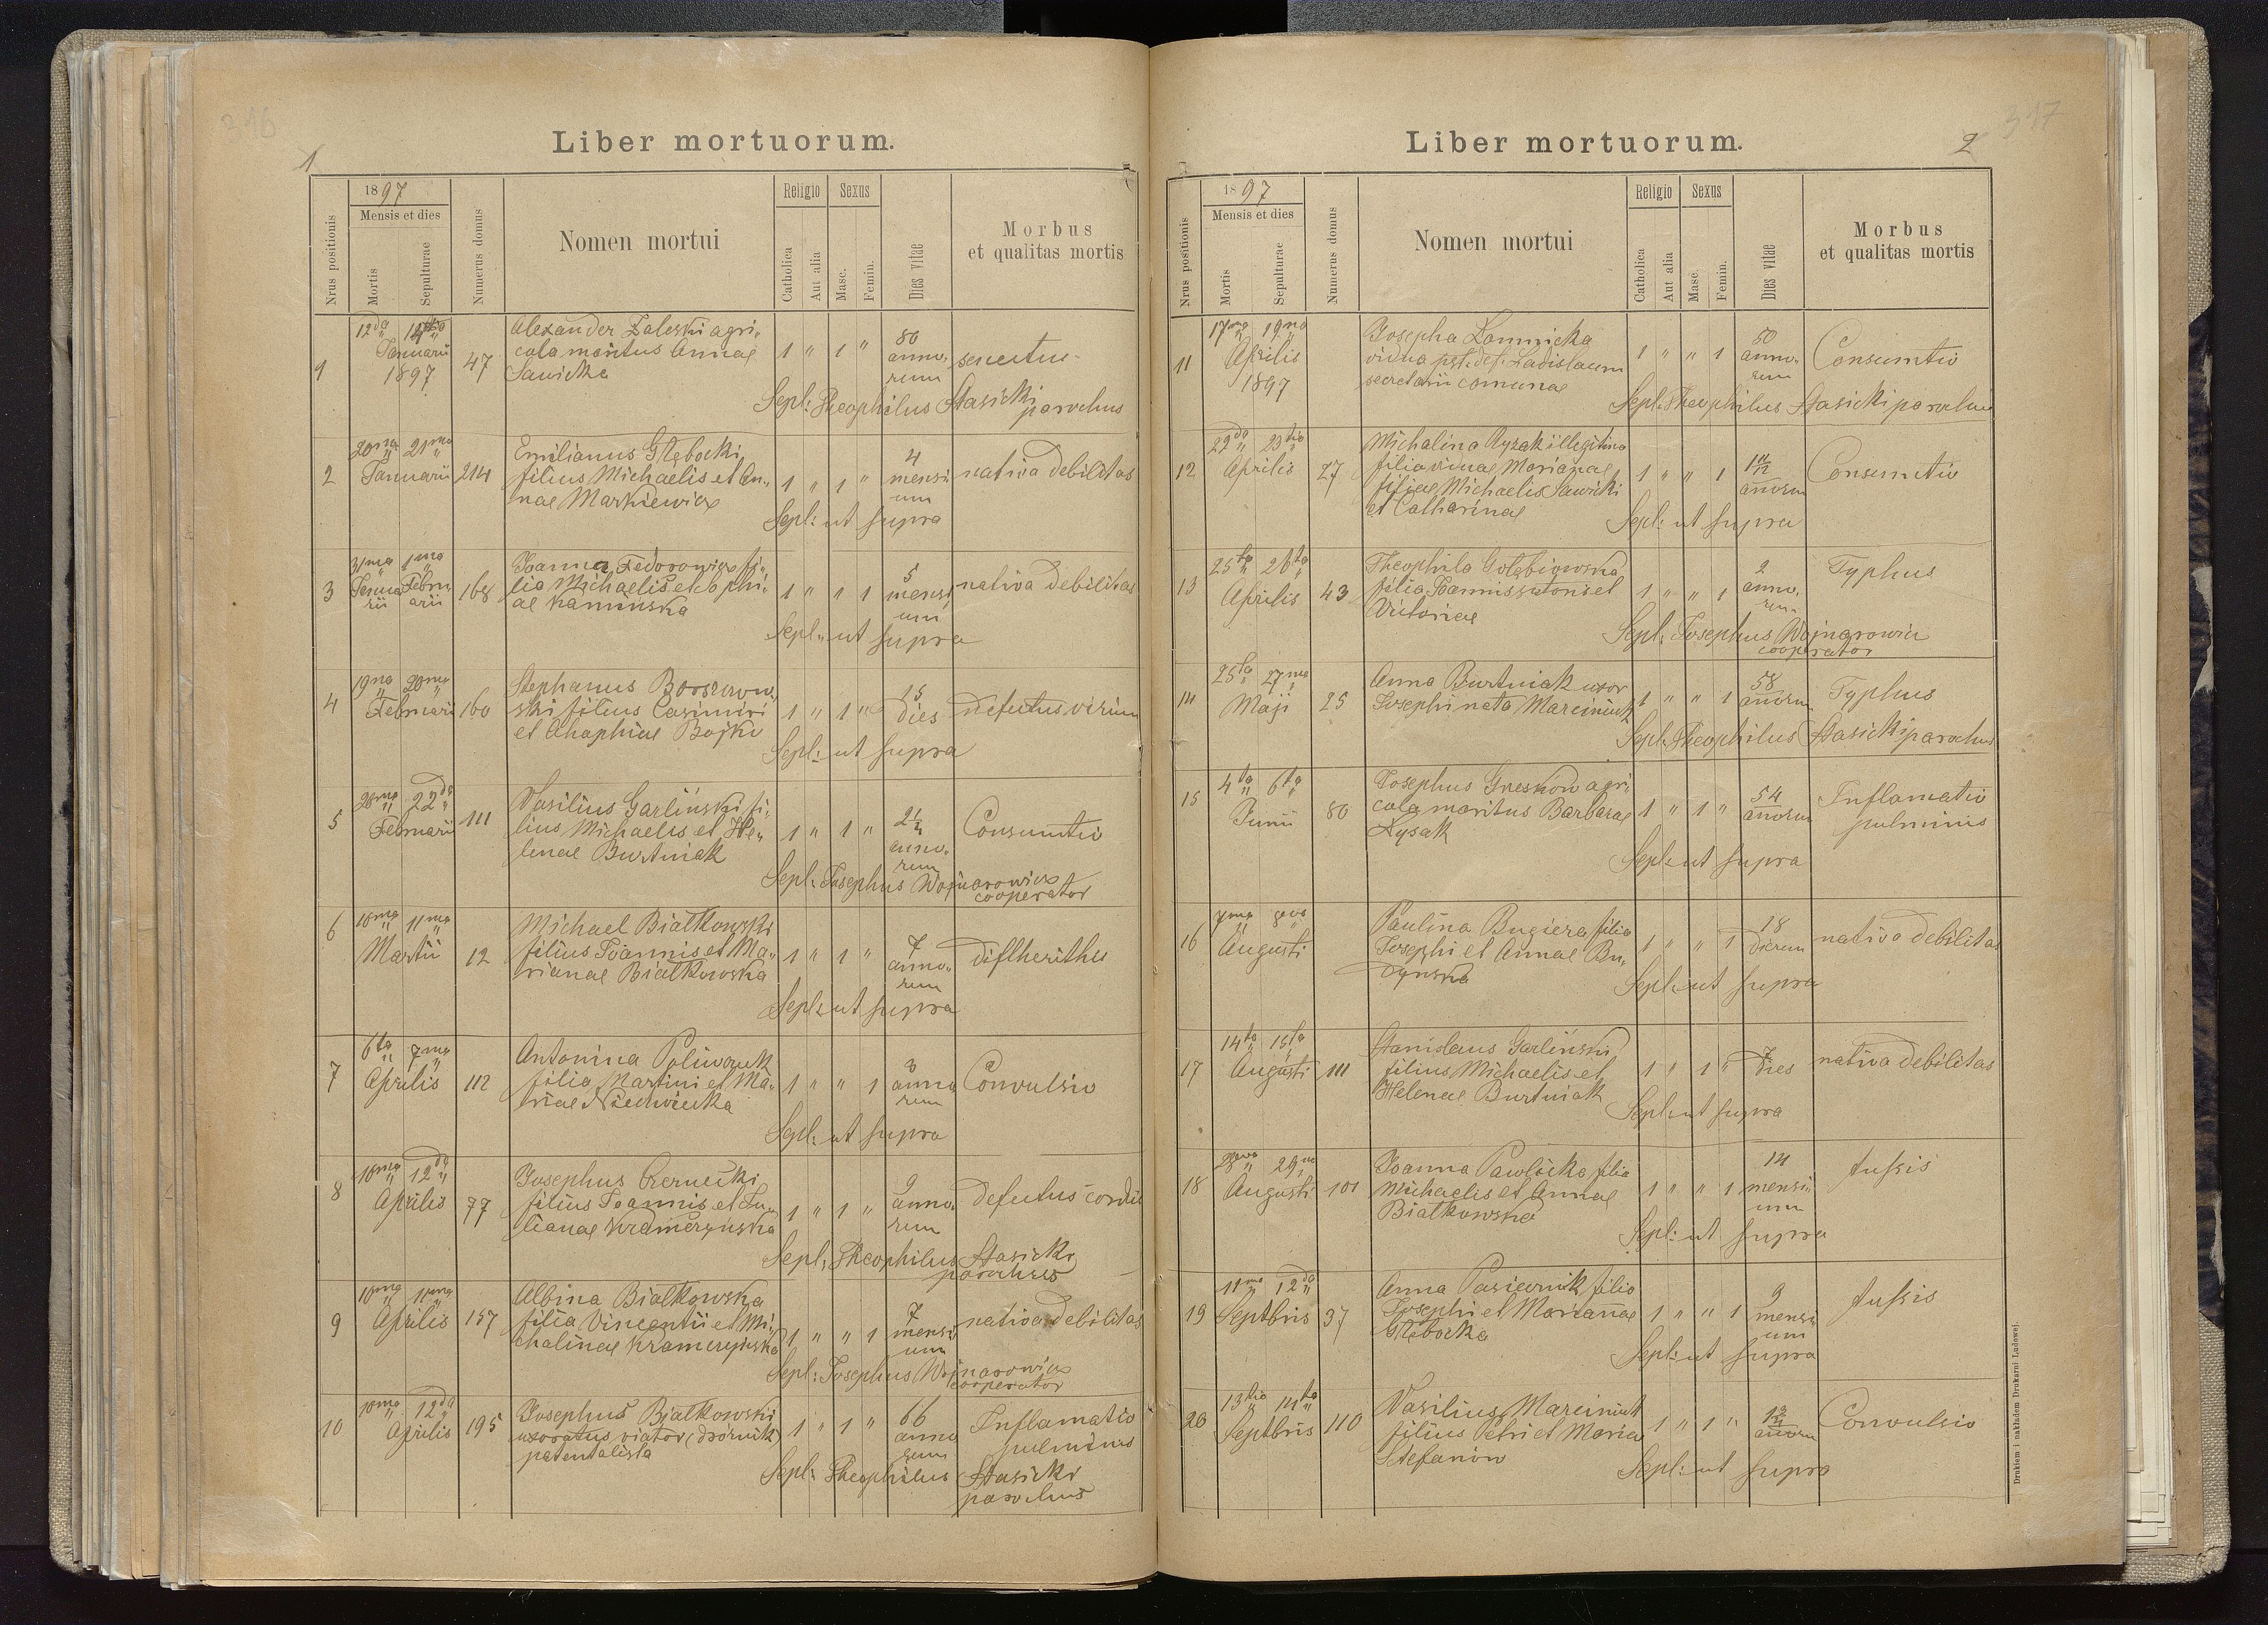 216
1
Liber mortuorum.
Nrus positionis
1897
Mensis et dies
Mortis
Sepulturae
Numerus domus
Nomen mortui
Religio
Catholica
Aut alia
Sexus
Masc.
Femin.
Dies vitae
Morbus
et qualitas mortis
1
12da 14ta
Januarii
1897
47
Alexander Zaleski agri„
cola maritus Annae
Sawicka
1 „ 1 „
80
anno„
rum
senectus
Sepl: Theophilus Stasicki
parochus
2
20ma 21ma
Januarii
214
Emilianus Głębocki
filius Michaelis et An„
nae Markiewicz
1 „ 1 „
4
mensi
um
nativa debilitas
Sepl: ut supra
3
31ma 1ma
Janua Febru
rii arii
168
Joanna Fedorowicz fi„
lia Michaelis et Sophi„
ae Kaminska
1 „ 1 1
5
mensi
um
nativa debilitas
Sepl: ut supra
4
19na 20ma
Februarii
160
Stephanus
ski filius Casimiri
et Ahaphiae Bojko
1 „ 1 „
15
dies
defectus virium
Sepl: ut supra
5
20ma 22da
Februarii
111
Wasilius Garliński fi„
lius Michaelis et He„
lenae Burtniak
1 „ 1 „
2 1/4
anno„
rum
Consumtio
Sepl: Josephus Wojnarowicz
cooperator
6
10ma 11ma
Martii
12
Michael Białkowski
filius Joannis et Ma„
rianae Białkowska
1 „ 1 „
7
anno„
rum
diftherithis
Sepl: ut supra
7
6ta 7ma
Aprilis
112
Antonina Poliwczuk
filia Martini et Ma„
riae Niedwiecka
1 „ „ 1
3
anno
rum
Convulsio
Sepl: ut supra
8
10ma 12da
Aprilis
77
Josephus Czernecki
filius Joannis et Ju„
lianae Kramerzynska
1 „ 1 „
9
anno„
rum
defectus cordis
Sepl: Theophilus Stasicki
parochus
9
10ma 11ma
Aprilis
157
Albina Białkowska
filia Vincentii et Mi„
chalinae Kramerzynska
1 „ „ 1
7
mensi
um
nativa debilitas
Sepl: Josephus Wojnarowicz
cooperator
10
10ma 12da
Aprilis
195
Josephus Białkowski
uxoratus viator (dróżnik)
patentalista
1 „ 1 „
66
anno
rum
Inflamatio
pulminis
Sepl: Theophilus Stasicki
parochus
317
2
Liber mortuorum.
Nrus positionis
1897
Mensis et dies
Mortis
Sepulturae
Numerus domus
Nomen mortui
Religio
Catholica
Aut alia
Sexus
Masc.
Femin.
Dies vitae
Morbus
et qualitas mortis
11
17ma 19na
Aprilis
1897
Josepha Łomnicka
vidua post. def. Ladislaum
secretarii comunae
1 „ „ 1
50
anno„
rum
Consumtio
Sepl: Theophilus Stasicki parochus
12
22da 23tia
Aprilis
27
Michalina Ryzak illegitima
filia viduae Marianae
filiae Michaelis Sawicki
et Catharinae
1 „ „ 1
anorum
Consumtio
Sepl: ut supra
13
25ta 26ta
Aprilis
43
Theophila Gołębiowska
filia Joannis sutoris et
Victoriae
1 „ „ 1
2
anno„
rum
Typhus
Sepl: Josephus Wojnarowicz
cooperator
14
25ta 27ma
Maji
25
Anna Burtniak uxor
Josephi nata Marciniuk
1 „ „ 1
58
anorum
Typhus
Sepl: Theophilus Stasicki parochus
15
4ta 6ta
Junii
80
Josephus Greskow agri„
cola maritus Barbarae
Łysak
1 „ 1 „
54
anorum
Inflamatio
pulminis
Sepl: ut supra
16
7ma 8va
Augusti
Paulina Bugiera filia
Josephi et Annae Bu„
dynska
1 „ „ 1
18
dierum
nativa debilitas
Sepl: ut supra
17
14ta 15ta
Augusti
111
Stanislaus Garliński
filius Michaelis et
Helenae Burtniak
1 „ 1 „
7
dies
nativa debilitas
Sepl: ut supra
18
28va 29na
Augusti
101
Joanna Pawlicka filia
Michaelis et Annae
Białkowska
1 „ „ 1
14
mensi
um
tussis
Sepl: ut supra
19
11ma 12da
Septbris
37
Anna Pasiecznik filia
Josephi et Marianae
Głębocka
1 „ „ 1
9
mensi
um
tussis
Sepl: ut supra
20
13tia 14ta
Septbris
110
Wasilius Marciniuk
filius Petri et Maria
Stefanów
1 „ 1 „
anorum
Convulsio
Sepl: ut supra
Drukiem i nakładem Drukarni Ludowej.